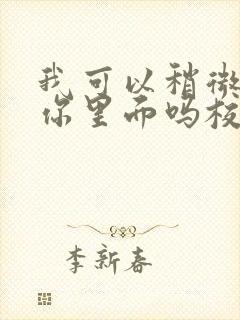 我可以稍微
你里面吗板
李新春